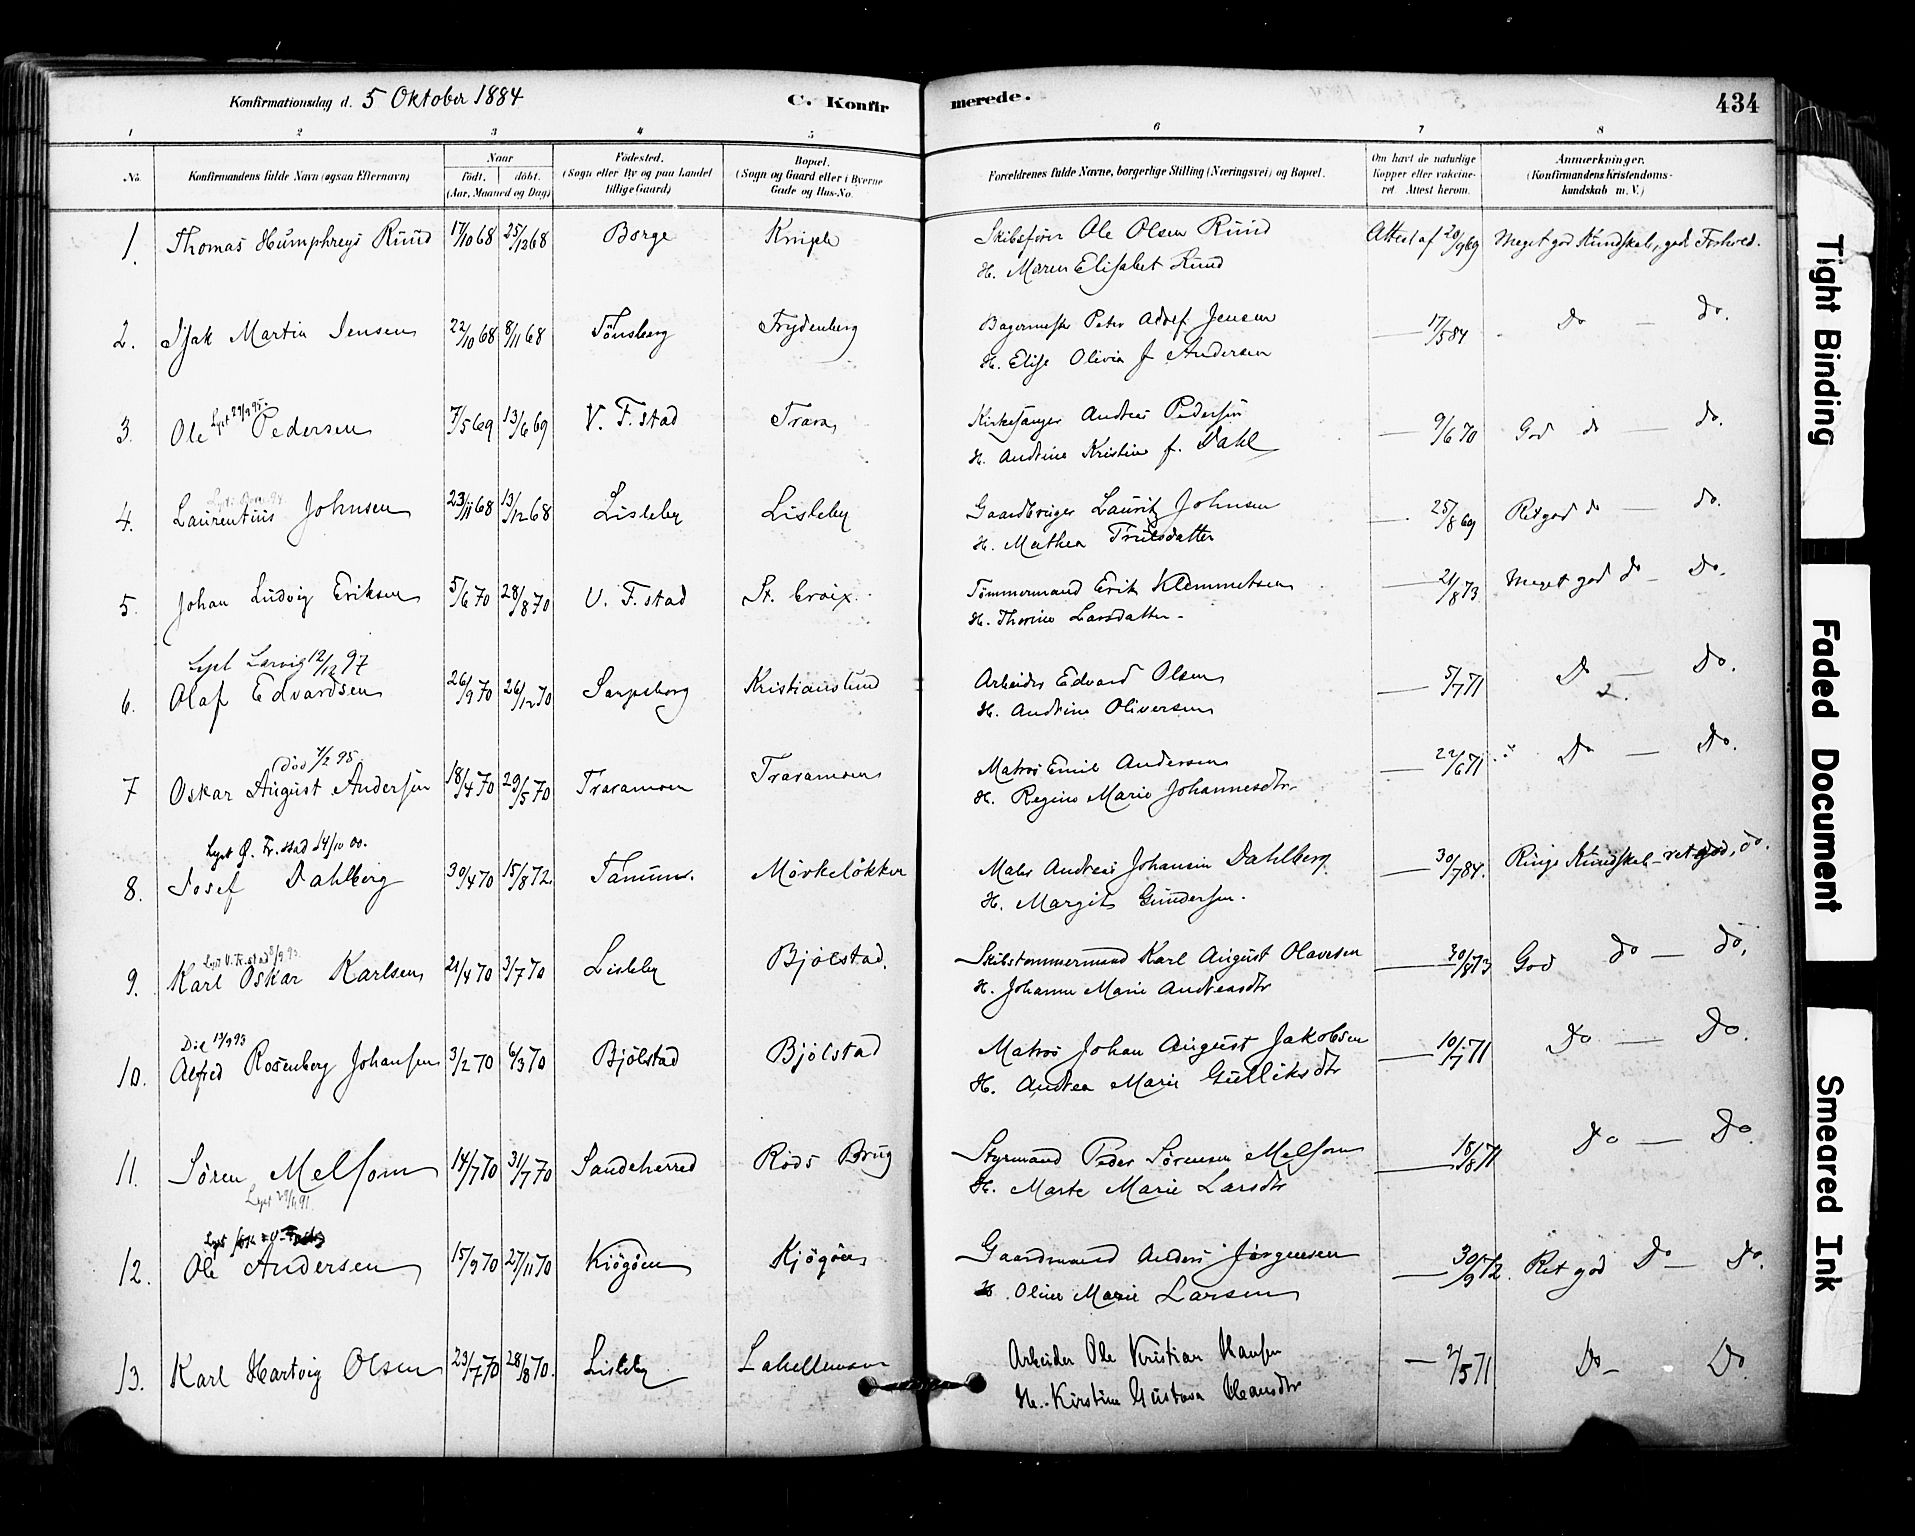 Konfirmationsdag d. 5 Oktober 1884
C. Konfirmerede.
434
1 2 3 4 5 6 7 8
No. Konfirmandens fulde Navn (ogsaa Efternavn) Naar födt. döbt. (Aar, Maaned og Dag) Födested. (Sogn eller By og paa Landet tillige Gaard) Bopæl. (Sogn og Gaard eller i Byerne Gade og Hus-No. Forældrenes fulde Navne, borgerlige Stilling (Næringsvei) og Bopæl. Om havt de naturlige Kopper eller vakcineret. Attest herom. Anmærkninger. (Konfirmandens Kristendomskundskab m. V.)
1. Thomas Humphreys Ruud 17/10 68 25/12 68 Borge Kniple Skibsfører Ole Olsen Ruud Attest af 20/9 69 Meget god Kundskab, god Forhold.
H. Maren Elisabet Ruud
2. Isak Martin Jensen 22/10 68 8/11 68 Tönsberg Frydenberg Bagermester Peter Adolf Jensen — 17/5 84 Do — do.
H. Elise Olivia f. Andersen
Lyst 29/9 95.
3. Ole Pedersen 7/5 69 13/6 69 V. F.stad Trara Kirkesanger Andreas Pedersen — 9/6 70 God do — do.
H. Andrine Kristine f. Dahl
4. Laurentius Johnsen 23/11 68 13/12 68 Lisleby Lisleby Gaardbruger Lauritz Johnsen — 25/8 69 Ret god do — do.
H. Mathea Trulsdatter
5. Johan Ludvig Eriksen 5/6 70 28/8 70 V. F.stad St. Croix. Tömmermand Erik Klemmetsen — 21/8 73 Meget god do — Do.
H. Thorine Larsdatter.
Lyst Larvig 12/12 97
6. Olaf Edvardsen 26/9 70 26/12 70 Sarpsborg Kristianslund Arbeider Edvard Olsen — 5/7 71 Do — Do.
H. Andrine Oliversen
(död 7/2 95
7 Oskar August Andersen 18/4 70 29/5 70 Traramoen Traramoen Matros Emil Andersen — 22/6 71 Do — Do.
H. Regine Marie Johannesdtr.
Lyst Ø. Fr.stad 14/10 00.
8. Josef Dahlberg 30/4 70 15/8 72. Tanum. Mörkelökken Maler Andreas Johansen Dahlberg — 30/7 84. Ringe Kundskab — ret god, do.
H. Margit Gundersen.
Lyst V. Fr.stad 8/9 93
9. Karl Oskar Karlsen 21/4 70 3/7 70 Lisleby Bjölstad. Skibstømmermand Karl August Olavesen — 30/8 73 God do — do.
H. Johanne Marie Andreasdtr
Die 13/9 93
10. Alfred Rosenberg Johansen 3/2 70 6/3 70 Bjölstad Bjölstad Matros Johan August Jakobsen — 10/7 71 Do — Do.
H. Andrea Marie Gulliksdtr
11. Sören Melsom 14/7 70 31/7 70 Sandeherred Röds Brug Styrmand Peder Sørensen Melsom — 15/8 71 Do — Do.
H. Marte Marie Larsdtr
Lyst 29/4 91.
Lyst
12. Ole Andersen 15/9 70 27/11 70 Kiögöen Kjögöen Gaardmand Anders Jørgensen — 30/9 72. Ret god Do — Do.
H. Oline Marie Larsen
13. Karl Hartvig Olsen 23/7 70 28/8 70. Lisleby Lahellemoen Arbeider Ole Kristian Hansen — 2/5 71 Do — Do
H. Kirstine Gustava Hansdtr
Tight Binding
Faded Document
Smeared Ink